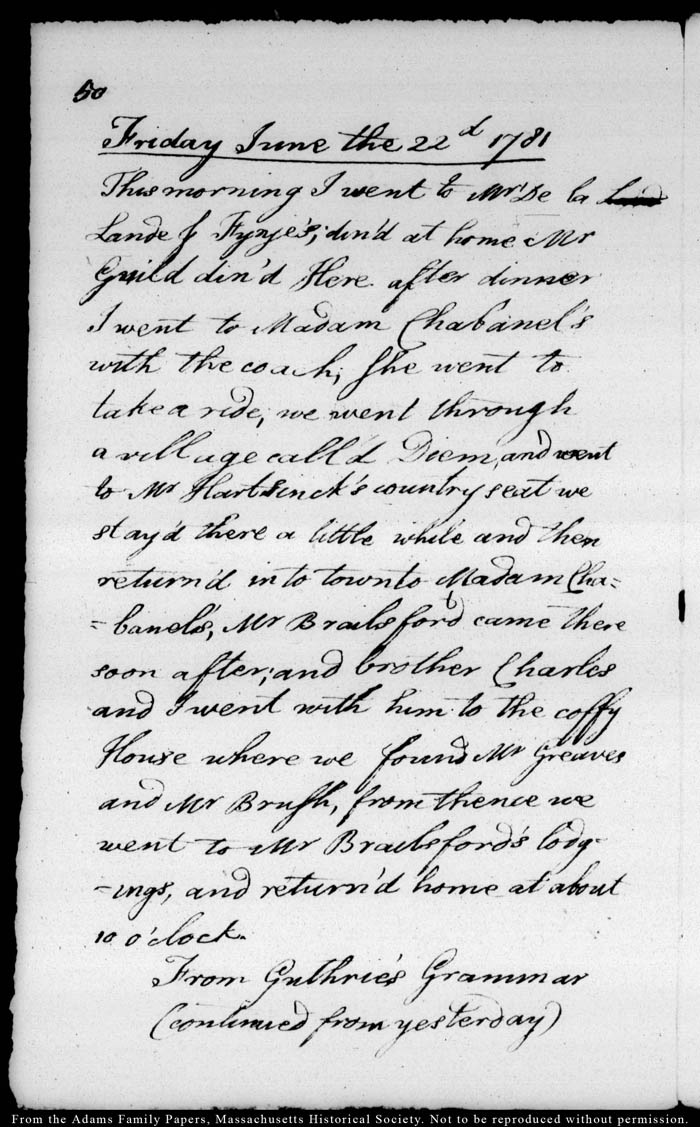 50
Friday June the 22d 1781
This morning I went to Mr. De la
Lande & Fynje's; din'd at home Mr
Guild din'd Here after dinner
I went to Madam Chabanel's
with the coach; She went to
take a ride; we went through
a village call'd Diem, and went
to Mr Hartsinck's country seat we
stay'd there a little while and then
return'd into town to Madam Cha=
=banel's, Mr Brailsford came there
soon after; and brother Charles
and I went with him to the coffy
House where we found Mr Greaves
and Mr Brush, from thence we
went to Mr Brailsford's lodg-
-ings, and return'd home at about
10 o'clock.
From Guthrie's Grammar
(continued from yesterday)
From the Adams Family Papers, Massachusetts Historical Society. Not to be reproduced without permission.